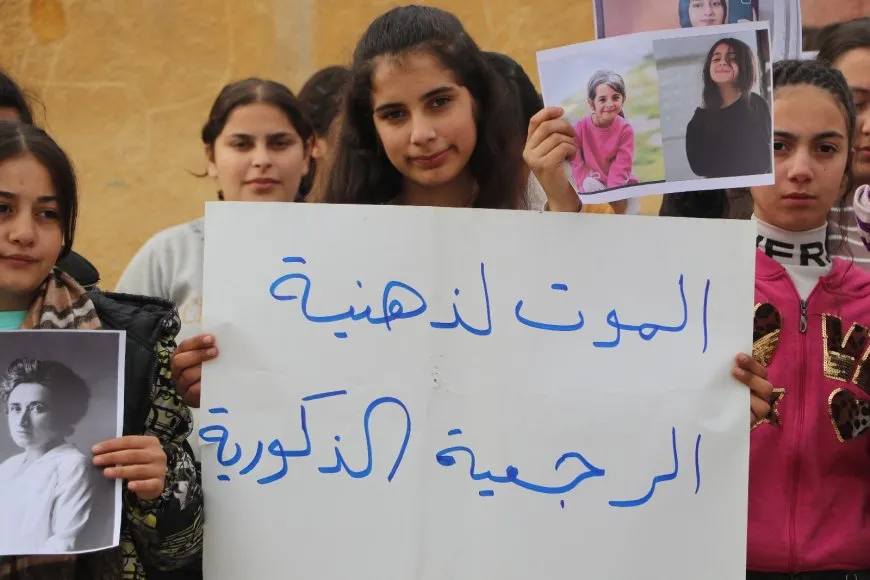 الموت لذهنية
الرجعية الذكورية
VER